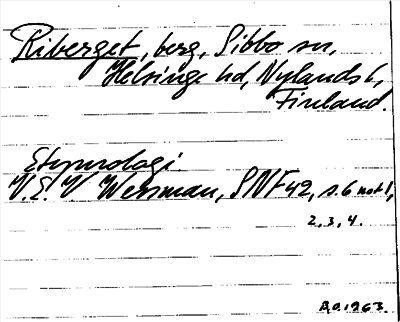 Riberget, berg, Sibbo sn,
Helsinge hd, Nylands l,
Finland.
Etymologi.
V.E.V Wessman, SNF 42, s. 6 not 1,
2, 3, 4.
A.O. 1963.